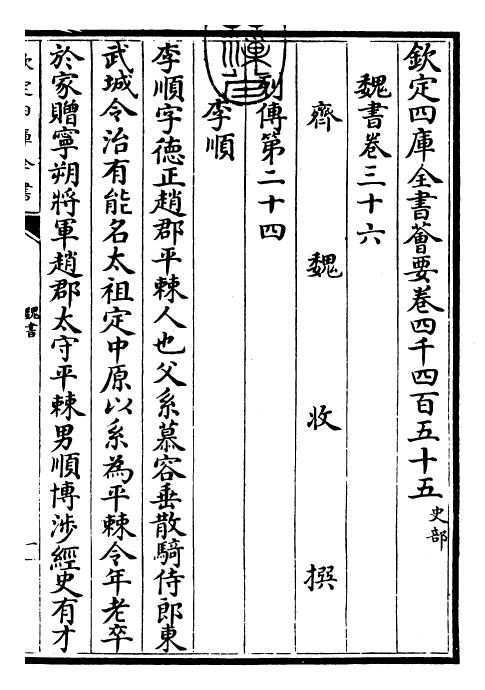 欽定四庫全書薈要卷四千四百五十五史部
魏書卷三十六
齊魏收撰
列傳第二十四
李順
李順字德正趙郡平棘人也父系慕容垂散騎侍郎東
武城令治有能名太祖定中原以系為平棘令年老卒
於家贈寧朔將軍趙郡太守平棘男順博渉經史有才
欽定四庫全書
魏書
一